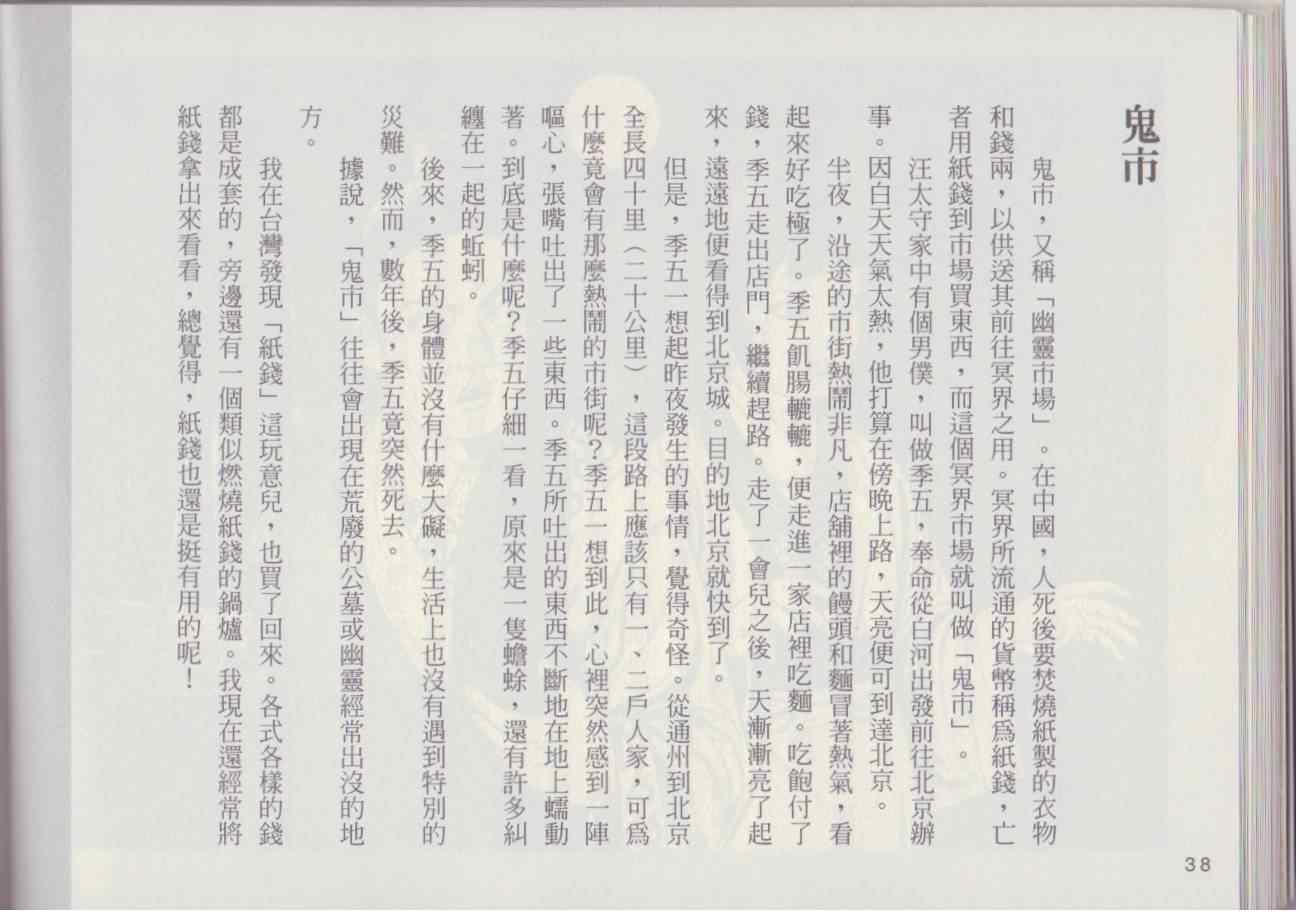 鬼市
鬼市，又稱「幽靈市場」。在中國，人死後要焚燒紙製的衣物
和錢兩，以供送其前往冥界之用。冥界所流通的貨幣稱爲紙錢，亡
者用紙錢到市場買東西，而這個冥界市場就叫做「鬼市」。
汪太守家中有個男僕，叫做季五，奉命從白河出發前往北京辦
事。因白天天氣太熱，他打算在傍晚上路，天亮便可到達北京。
半夜，沿途的市街熱鬧非凡，店舖裡的饅頭和麵冒著熱氣，看
起來好吃極了。季五飢腸轆轆，便走進一家店裡吃麵。吃飽付了
錢，季五走出店門，繼續趕路。走了一會兒之後，天漸漸亮了起
來，遠遠地便看得到北京城。目的地北京就快到了。
但是，季五一想起昨夜發生的事情，覺得奇怪。從通州到北京
全長四十里（二十公里），這段路上應該只有一、二戶人家，可爲
什麼竟會有那麼熱鬧的市街呢？季五一想到此，心裡突然感到一陣
嘔心，張嘴吐出了一些東西。季五所吐出的東西不斷地在地上蠕動
著。到底是什麼呢？季五仔細一看，原來是一隻蟾蜍，還有許多糾
纏在一起的蚯蚓。
後來，季五的身體並沒有什麼大礙，生活上也沒有遇到特別的
災難。然而，數年後，季五竟突然死去。
據說，「鬼市」往往會出現在荒廢的公墓或幽靈經常出沒的地
方。
我在台灣發現「紙錢」這玩意兒，也買了回來。各式各樣的錢
都是成套的，旁邊還有一個類似燃燒紙錢的鍋爐。我現在還經常將
紙錢拿出來看看，總覺得，紙錢也還是挺有用的呢！
38